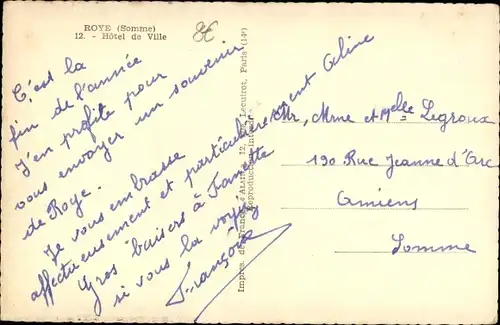 ROYE (Somme)
12. - Hôtel de Ville
C'est la
fin de l'année
J'en profite pour
vous envoyer un souvenir
de Roye.
Je vous embrasse
affectueusement et particulièrement Aline
Gros baisers à Fanette
si vous la voyez
Françoise
Mr, Mme et Melle Legroux
190 Rue Jeanne d'Arc
Amiens
Somme
Lecuirot, Paris (14e)
Reproduction interdite